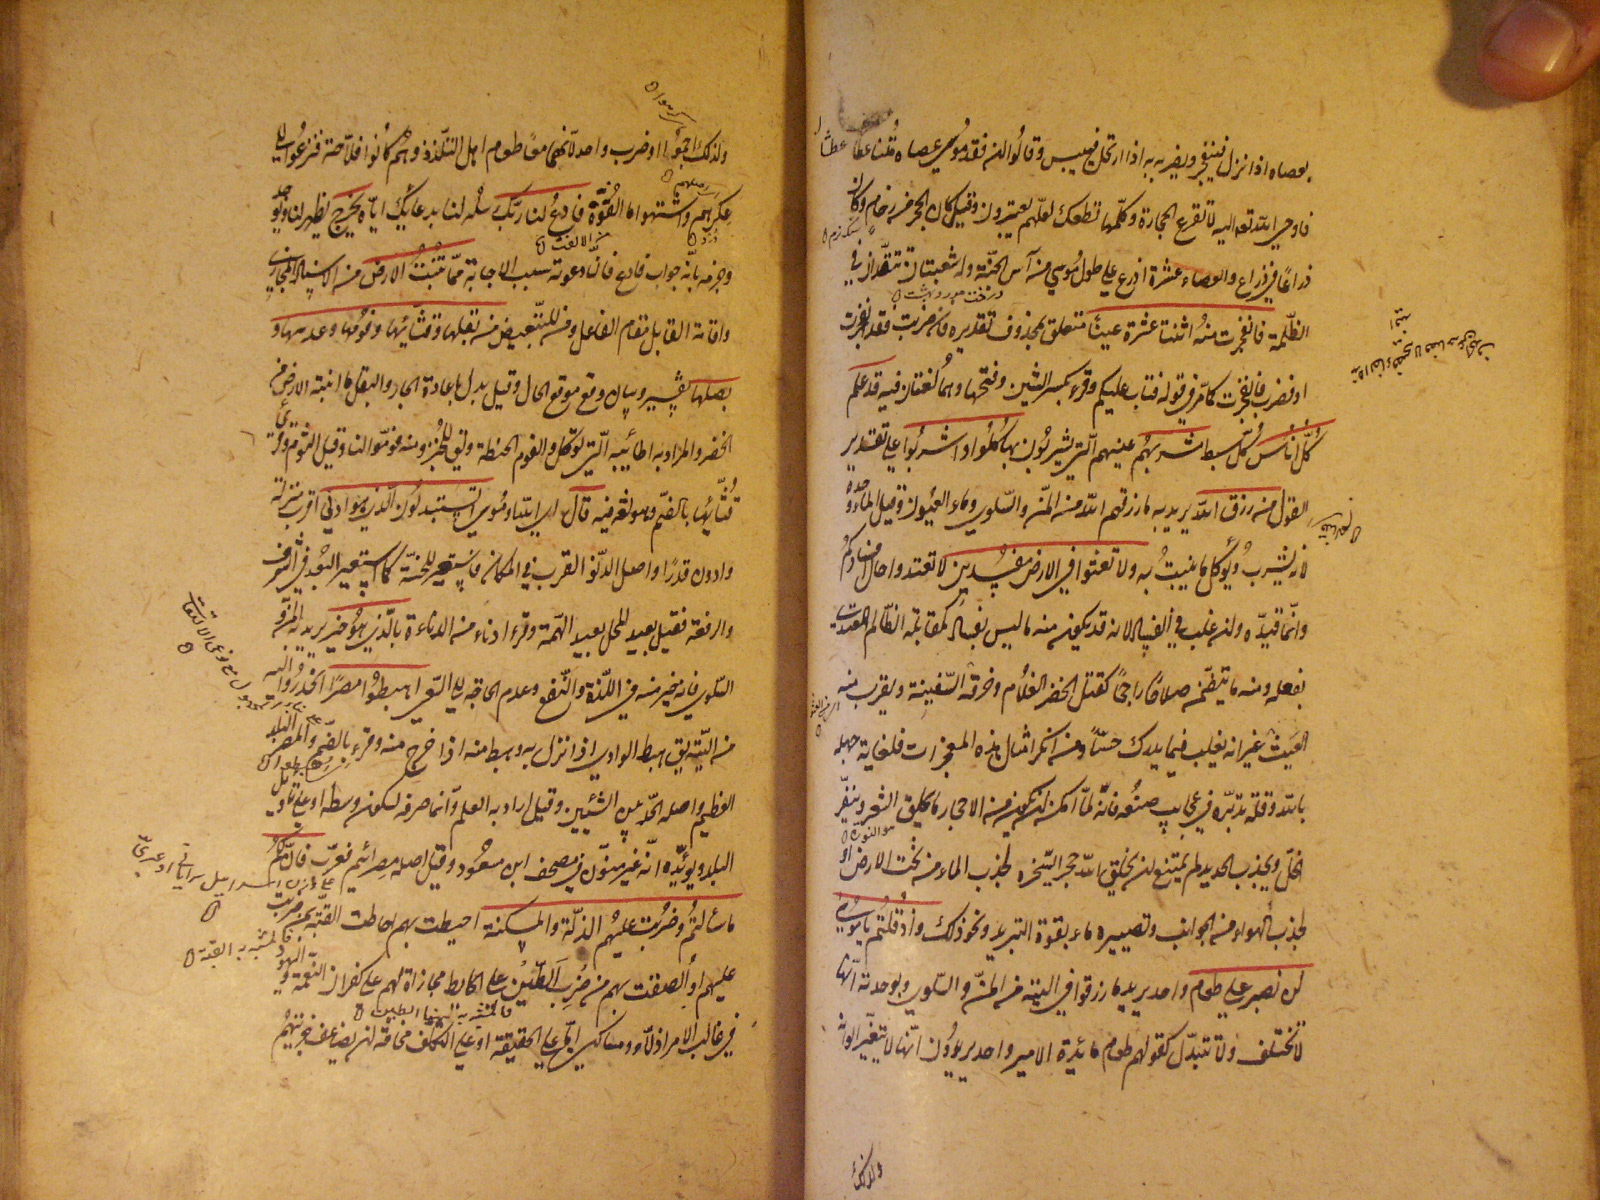 بعصاه اذا نزل فينفجر ويضربه به اذا ارتحل فييبس وقالوا ان فقد موسى عصاه متنا عطشا
فاوحى الله تعه اليه لا تقرع الحجارة وكلمها تطعك لعلهم يعتبرون وقيل كان الحجر من رخام وكان
ذراعًا في ذراع والعصاء عشرة اذرع على طول موسى من آس الجنة وله شعبتان تتقدان في
الظلمة فانفجرت منه اثنتا عشرة عينًا متعلق بمحذوف تقديره فان ضربت فقد انفجرت
او فضرب فانفجرت كما مر في قوله فتاب عليكم وقرء بكسر الشين وفتحها وهما لغتان فيه قد علم
كل اناس كل سبط مشربهم عينهم التي يشربون منها كلوا واشربوا على تقدير
القول من رزق الله يريد به ما رزقهم الله من المن والسلوى وماء العيون وقيل الماء وحده
لانه يشرب ويؤكل ما ينبت به ولا تعثوا في الارض مفسدين لا تعتدوا حال افسادكم
وانما قيده لانه وان غلب في الفساد قد يكون منه ما ليس بفساد كمقابلة الظالم المعتدي
بفعله ومنه ما يتضمن صلاحًا راجحًا كقتل الخضر الغلام وخرقه السفينة ويقرب منه
العيث غير انه يغلب فيما يدرك حسًا ومن انكر امثال هذه المعجزات فلغاية جهله
بالله وقلة تدبره في عجايب صنعه فانه لما امكن ان يكون من الاحجار ما يحلق الشعر وينفر
الخل ويجذب الحديد لم يمتنع ان يخلق الله حجر ايسخره لجذب الماء من تحت الارض او
لجذب الهواء من الجوانب وتصييره ماء بقوة التبريد ونحو ذلك واذ قلتم يا موسى
لن نصبر على طعام واحد يريد به ما رزقوا في التيه من المن والسلوى وبوحدته انها
لا تختلف ولا تتبدل كقولهم طعام مائدة الامير واحد يريدون انها لا يتغير الوانه
ولذلك
ولذلك اجموا او ضرب واحد لانهما معًا طعام اهل التلذذ وهم كانوا فلاحة فنزعوا الى
عكرهم واشتهوا ما الفوه فادع لنا ربك سله لنا بدعائك اياه يخرج يظهر لنا ويوجد
وجزمه بانه جواب فادع فان دعوته سبب الاجابة مما تنبت الارض من الاسناد المجازي
واقامة القابل مقام الفاعل ومن للتبعيض من بقلها وقثائها وفومها وعدسها و
بصلها تفسير وبيان وقع موقع الحال وقيل بدل باعادة الجار والبقل ما انبته الارض من
الخضر والمراد به اطائيبه التي تؤكل والفوم الحنطة ويق للخبز ومنه فوموا لنا وقيل الثوم وقرئ
قثائها بالضم وهو لغة فيه قال اي الله او موسى اتستبدلون الذي هو ادنى اقرب منزلة
وادون قدرًا واصل الدنو القرب في المكان فاستعير للخسة كما استعير البعد في الشرف
والرفعة فقيل بعيد المحل بعيد الهمة وقرء ادناء من الدناءة بالذي هو خير يريد به المن و
السلوى فانه خير منه في اللذة والنفع وعدم الحاجة الى السعي اهبطوا مصرًا انحدروا اليه
من التيه يق هبط الوادي اذا نزل به وهبط منه اذا خرج منه وقرء بالضم والمصر البلد
العظيم واصله الحد بين الشيئين وقيل اراد به العلم وانما صرفه لسكون وسطه او على تاويل
البلد ويؤيده انه غير منون في مصحف ابن مسعود وقيل اصله مصرائيم فعرب فان لكم
ما سألتم وضربت عليهم الذلة والمسكنة احيطت بهم احاطة القبة بمن ضربت
عليهم او الصقت بهم من ضرب الطين على الحايط مجازاة لهم على كفران النعمة واليهود
في غالب الامر اذلاء ومساكين اما على الحقيقة او على التكلف مخافة ان يضاعف جزيتهم